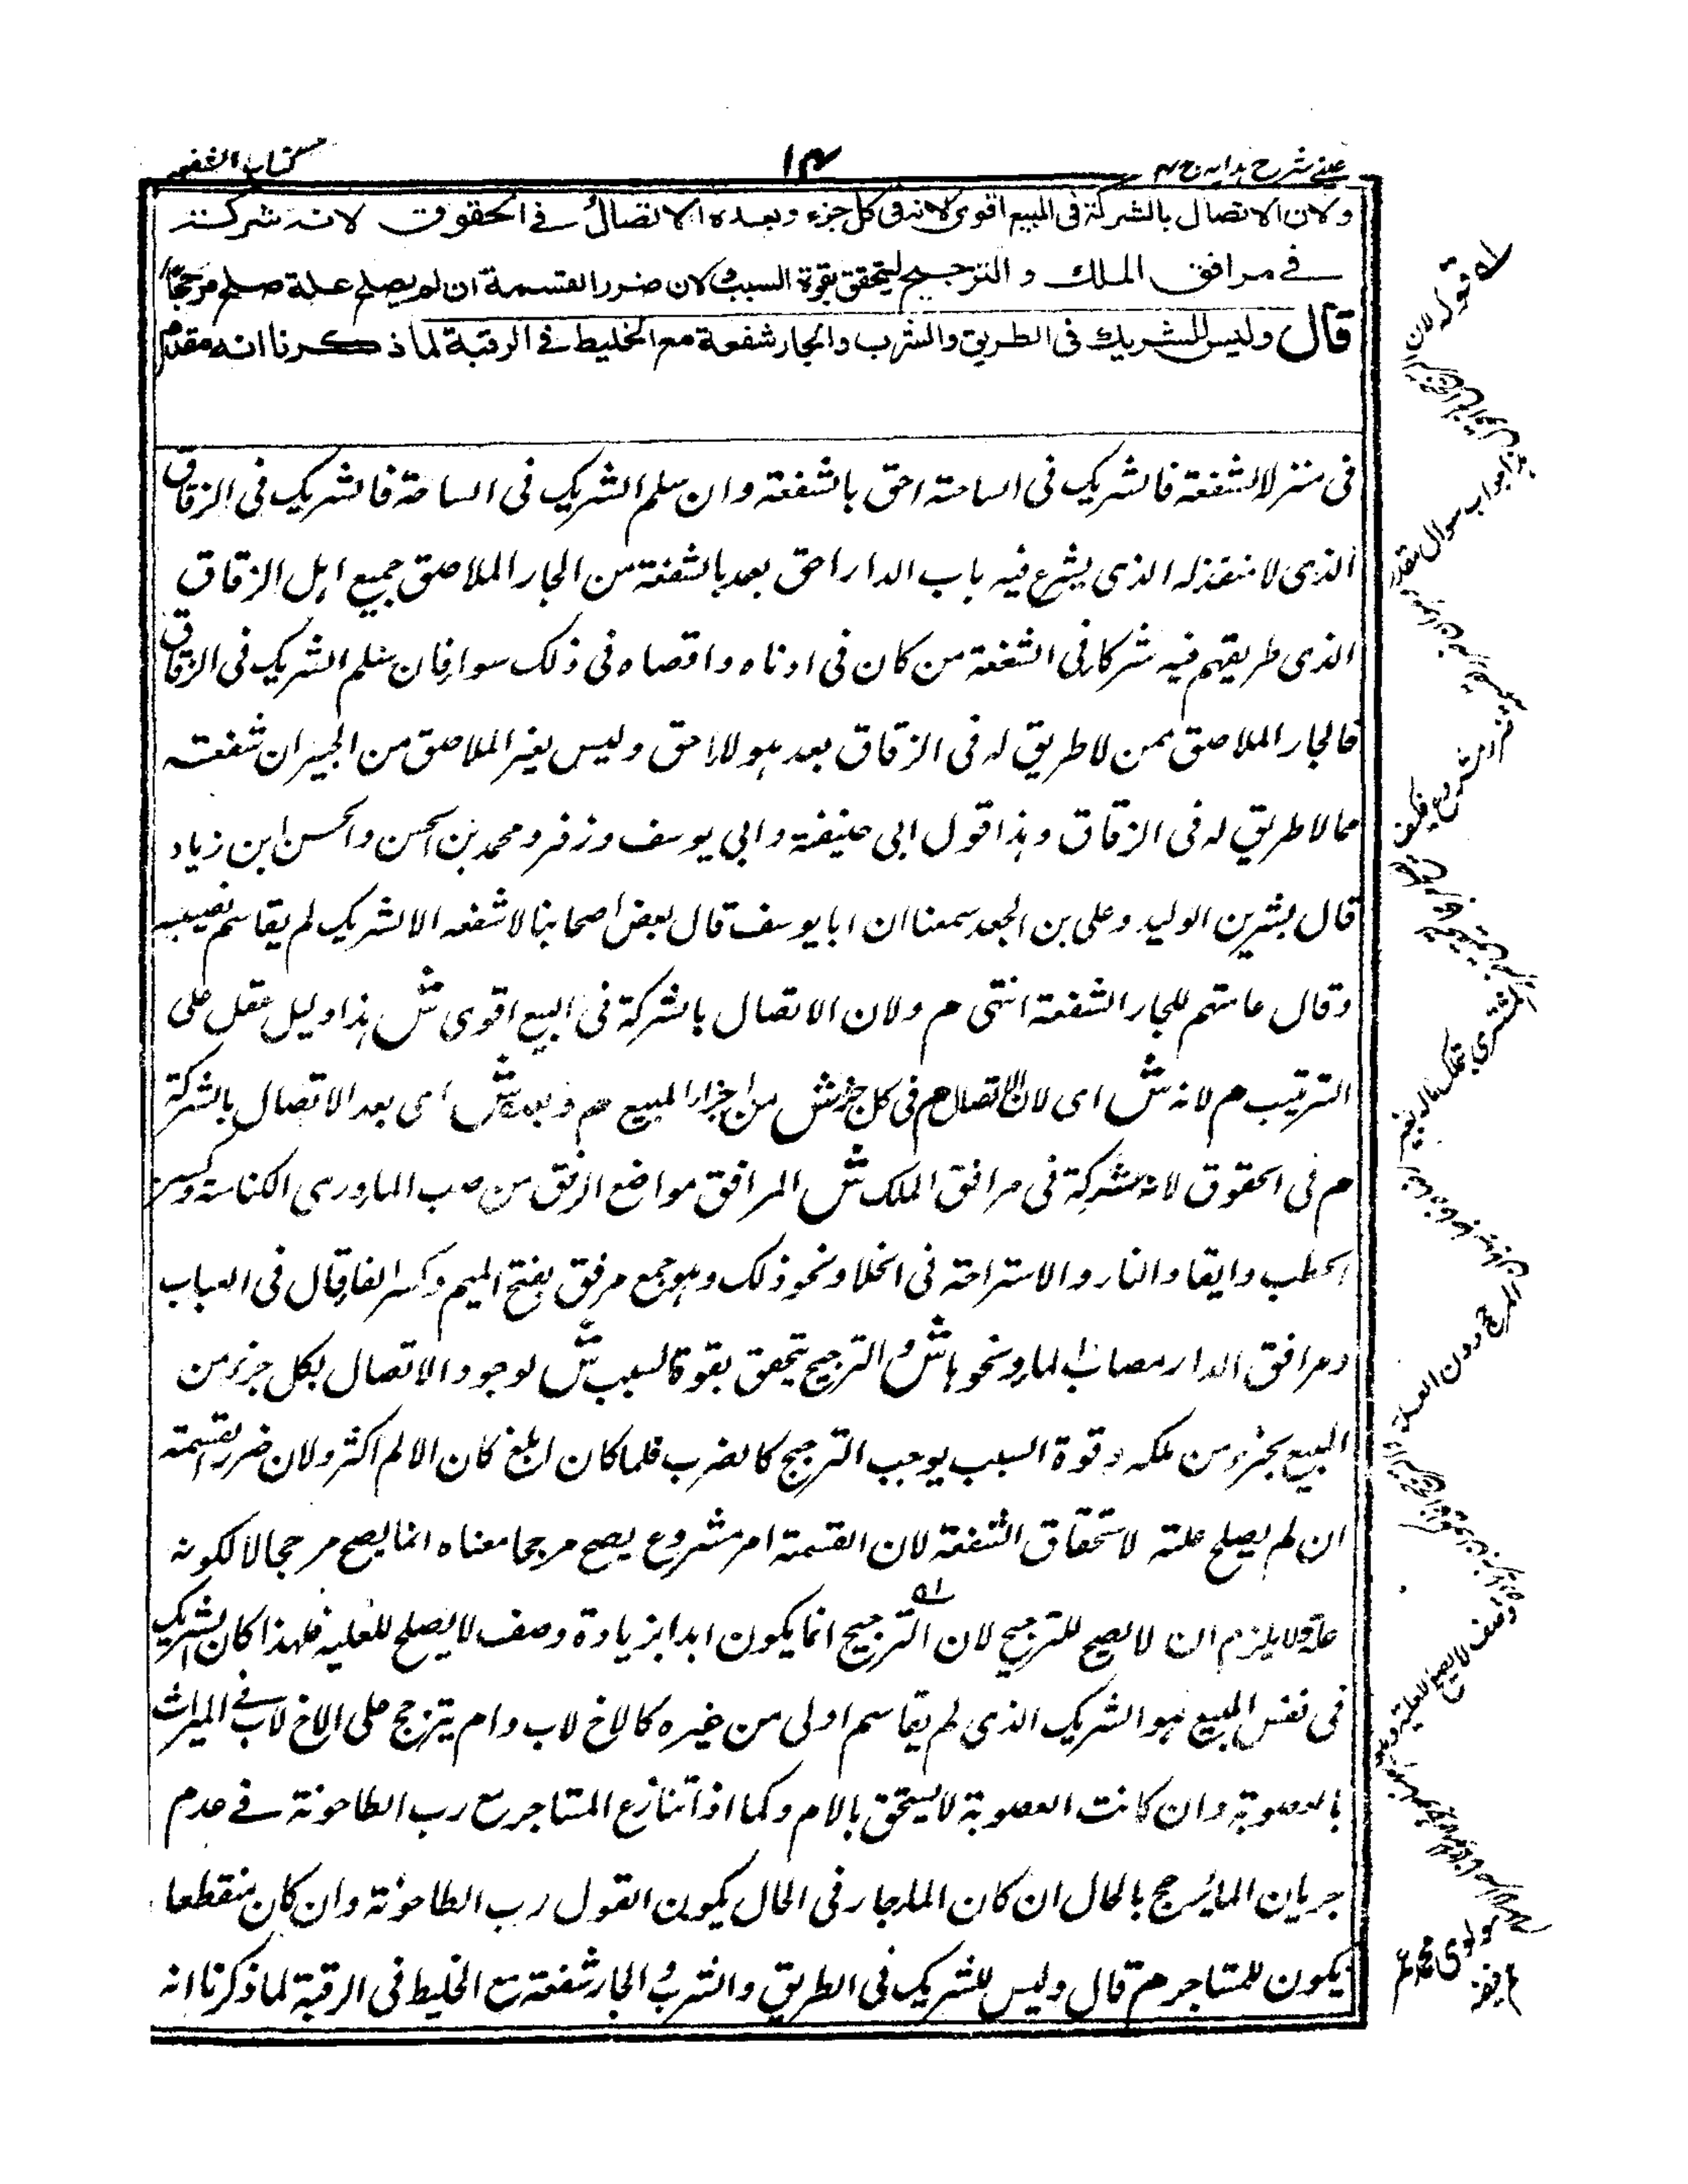 عينى شرح هدايه ج ٣
١٣
كتاب الشفعه
ولان الاتصال بالشركة فى المبيع اقوى لانه فى كل جزء وبعده الاتصال فى الحقوق لانه شركة
فى مرافق الملك و الترجيح يتحقق بقوة السبب ولان ضرر القسمة ان لم يصلح علة صلح مرجحا
قال وليس للشريك فى الطريق والشرب والجار شفعة مع الخليط فى الرقبة لما ذكرنا انه مقدم
فى منزلا لشفعة فالشريك فى الساحة احق بالشفعة وان سلم الشريك فى الساحة فالشريك فى الزقاق
الذى لا منفذ له الذى يشرع فيه باب الدار احق بعد بالشفعة من الجار الملاصق جميع اهل الزقاق
الذى طريقهم فيه شركاء فى الشفعة من كان فى ادناه واقصاه فى ذلك سواء فان سلم الشريك فى الزقاق
فالجار الملاصق ممن لا طريق له فى الزقاق بعد هولاء احق وليس بغير الملاصق من الجيران شفعة
مما لا طريق له فى الزقاق وهذا قول ابى حنيفة وابي يوسف وزفر ومحمد بن الحسن والحسن ابن زياد
قال بشر بن الوليد وعلى بن الجعد سمعنا ان ابا يوسف قال بعض اصحابنا لا شفعه الا لشريك لم يقاسم نصيبه
وقال عامتهم للجار الشفعة انتهى م ولان الاتصال بالشركة فى البيع اقوى ش هذا دليل عقل على
الترتيب م لانه ش اى لان الاتصال م فى كل جزء ش من اجزاء المبيع م وبعده ش اى بعد الاتصال بالشركة
م فى الحقوق لانه شركة فى مرافق الملك ش المرافق مواضع الرفق من صب الماء ورمى الكناسة وكسر
الحطب وايقاد النار والاستراحة فى الخلاء ونحو ذلك وهو جمع مرفق بفتح الميم وكسر الفاء قال فى العباب
ومرافق الدار مصاب الماء ونحوها ش م والترجيح يتحقق بقوة السبب ش لوجود الاتصال بكل جزء من
المبيع بجزء من ملكه وقوة السبب يوجب الترجيح كالضرب فلما كان ابلغ كان الالم اكثر ولان ضرر القسمة
ان لم يصلح علة لاستحقاق الشفعة لان القسمة امر مشروع يصح مرجحا معناه انما يصح مرجحا لا لكونه
علة ولا يلزم ان لا يصح للترجيح لان الترجيح انما يكون ابدا بزيادة وصف لا يصلح للعلية فلهذا كان الشريك
فى نفس المبيع هو الشريك الذى لم يقاسم اولى من غيره كالاخ لاب وام يترجح على الاخ لاب فى الميراث
بالعصوبة وان كانت العصوبة لا يستحق بالام وكما اذا تنازع المستاجر مع رب الطاحونة فى عدم
جريان الماء يرجح بالحال ان كان الماء جار فى الحال يكون القول رب الطاحونة وان كان منقطعا
يكون للمستاجر م قال وليس للشريك فى الطريق والشرب والجار شفعة مع الخليط فى الرقبة لما ذكرنا انه
له قوله لان
جواب سوال مقدر
دون العلة
وصف لا يصلح للعلية
مولوى محمد عمر